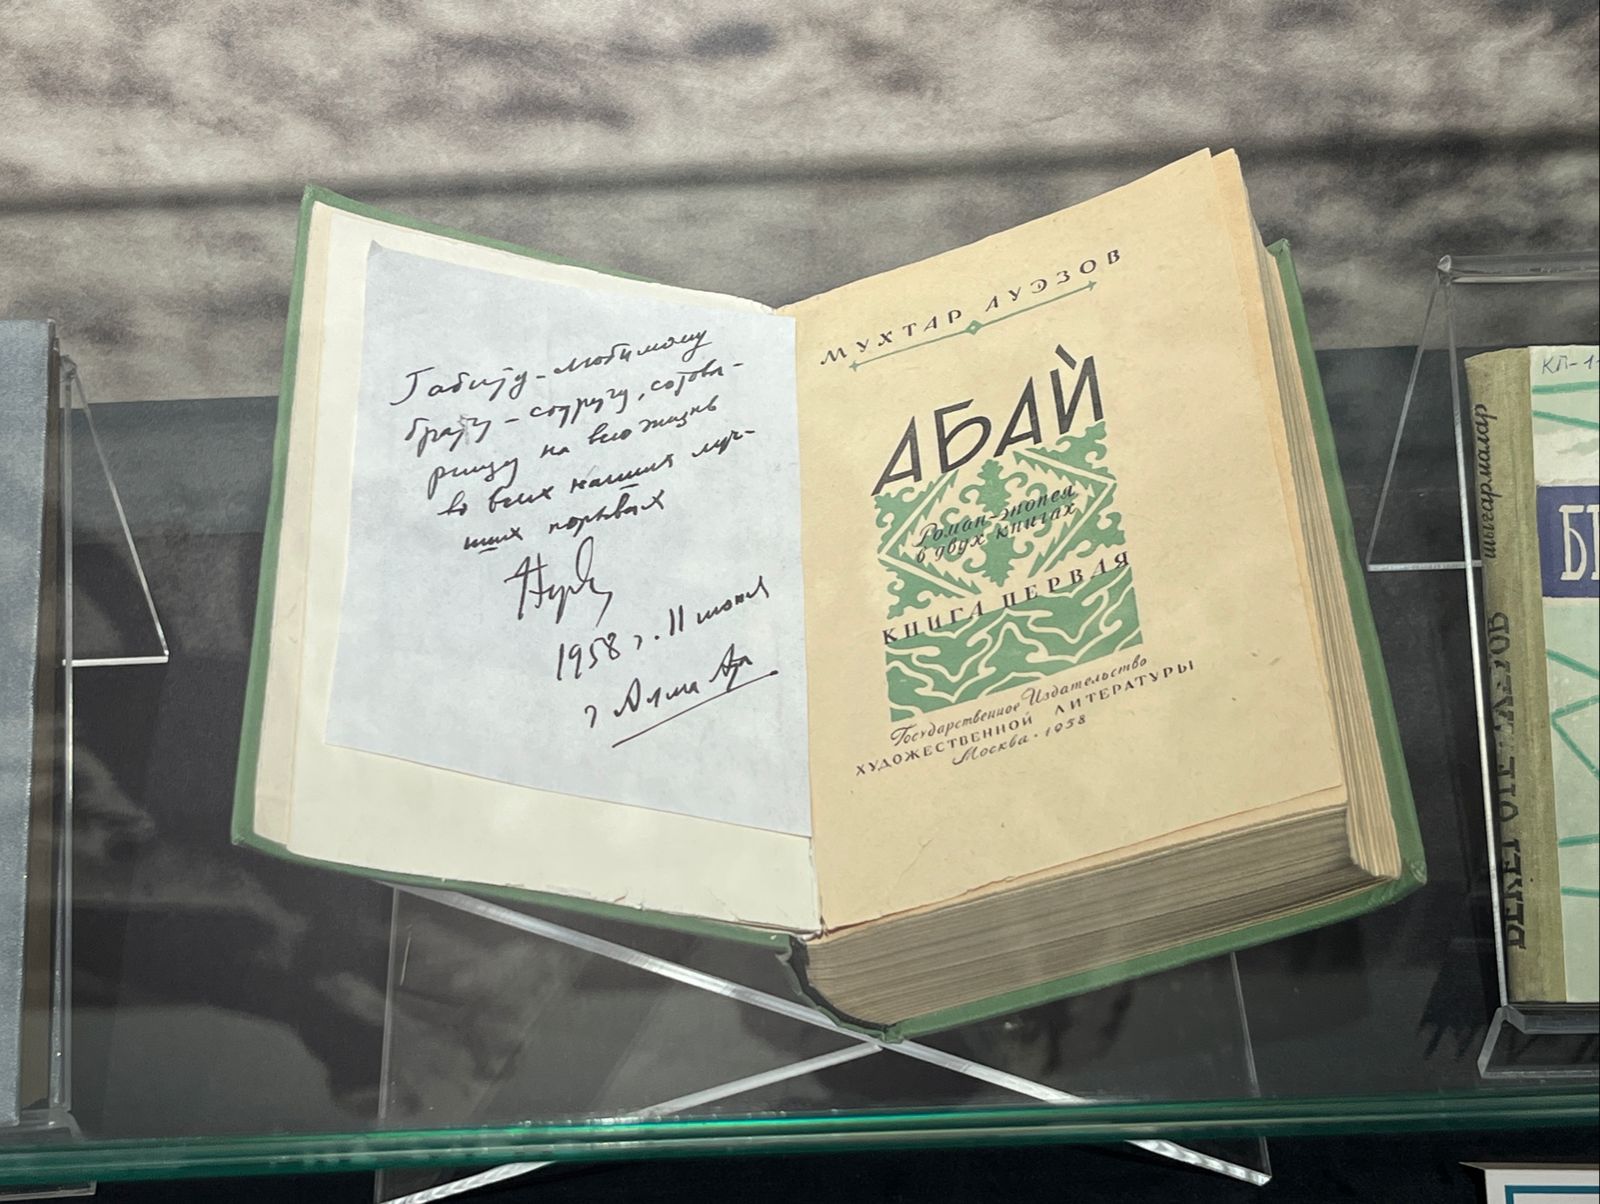 Габиту - любимому
брату - соπругу, сотова-
рищу на всю жизнь
во всех наших луч-
ших порывах
1958 г. 11 июня
г Алма Ата
МУХТАР АУЭЗОВ
АБАЙ
Роман-эпопея
в двух книгах
КНИГА ПЕРВАЯ
Государственное Издательство
ХУДОЖЕСТВЕННОЙ ЛИТЕРАТУРЫ
Москва · 1958
КП-1
шығармалар